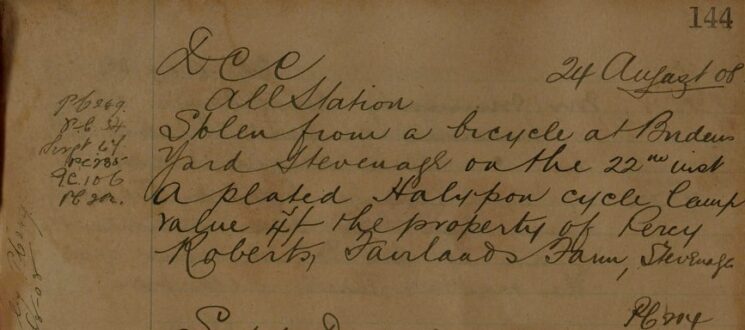 144
DCC
24 August 08
All Station
Stolen from a bicycle at
Yard Stevenage on the 22nd inst
a plated cycle lamp
value 4/- the property of Percy
Roberts, Fairlands Farm, Stevenage
PC 269.
P.C 34
Sergt 67
PC 235
PC.106
PC 202.
PC 204